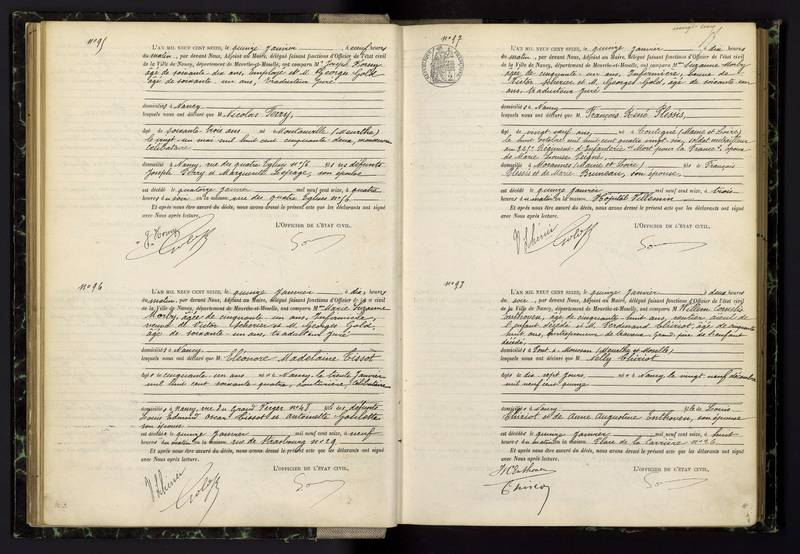 n° 95
L'AN MIL NEUF CENT SEIZE, le quinze Janvier, à neuf heures
du matin, par devant Nous, Adjoint au Maire, délégué faisant fonctions d'Officier de l'état civil
de la Ville de Nancy, département de Meurthe-et-Moselle, ont comparu M. Joseph
âgé de soixante dix ans, employé et M. Georges Gold
âgé de soixante un ans, traducteur juré
domiciliés à Nancy
lesquels nous ont déclaré que M. Nicolas Ferry,
âgé de soixante-trois ans, né à (Meurthe)
le vingt-un mai mil huit cent cinquante deux, manœuvre
célibataire
domicilié à Nancy, rue des quatre Eglises n° 76 fils des défunts
Joseph Ferry et Marguerite Lepage, son épouse
est décédé le quatorze janvier mil neuf cent seize, à quatre
heures du soir en la maison rue des quatre Eglises n° 76
Et après nous être assuré du décès, nous avons dressé le présent acte que les déclarants ont signé
avec Nous après lecture.
L'OFFICIER DE L'ÉTAT CIVIL,
n° 96
L'AN MIL NEUF CENT SEIZE, le quinze Janvier, à dix heures
du matin, par devant Nous, Adjoint au Maire, délégué faisant fonctions d'Officier de l'état civil
de la Ville de Nancy, département de Meurthe-et-Moselle, ont comparu Mme Marie Suzanne
Morby, âgée de cinquante un ans, Infirmière,
veuve de Victor et M. Georges Gold,
âgé de soixante un ans, traducteur juré
domiciliés à Nancy
lesquels nous ont déclaré que M. Eléonore Madelaine Tissot
âgée de cinquante un ans née à Nancy, le trente Janvier
mil huit cent soixante quatre, couturière, célibataire
domiciliée à Nancy, rue du Grand Verger n° 48 fille des défunts
Louis Edmond Oscar Tissot et Antoinette
son épouse
est décédée le quinze janvier mil neuf cent seize, à neuf
heures du matin en la maison rue de Strasbourg n° 29
Et après nous être assuré du décès, nous avons dressé le présent acte que les déclarants ont signé
avec Nous après lecture.
L'OFFICIER DE L'ÉTAT CIVIL,
n° 97
L'AN MIL NEUF CENT SEIZE, le quinze janvier, à dix heures
du matin, par devant Nous, Adjoint au Maire, délégué faisant fonctions d'Officier de l'état civil
de la Ville de Nancy, département de Meurthe-et-Moselle, ont comparu Mme Suzanne Morby
âgée de cinquante-un ans, Infirmière, veuve de
Victor et M. Georges Gold, âgé de soixante-un
ans, traducteur juré
domiciliés à Nancy
lesquels nous ont déclaré que M. François René Plessis,
âgé de vingt neuf ans, né à (Maine et Loire)
le huit octobre mil huit cent quatre vingt-six, soldat
au Régiment d'Infanterie "Mort pour la France" époux
de Marie Louise
domicilié à Morannes (Maine et Loire) fils de François
Plessis et de Marie Bruneau, son épouse,
est décédé le quinze janvier mil neuf cent seize, à trois
heures du matin en la maison Hôpital Villemin
Et après nous être assuré du décès, nous avons dressé le présent acte que les déclarants ont signé
avec Nous après lecture.
L'OFFICIER DE L'ÉTAT CIVIL,
n° 93
L'AN MIL NEUF CENT SEIZE, le quinze janvier, à deux heures
du soir, par devant Nous, Adjoint au Maire, délégué faisant fonctions d'Officier de l'état civil
de la Ville de Nancy, département de Meurthe-et-Moselle, ont comparu M. Willem Cornelis
Enthoven, âgé de cinquante huit ans, rentier, aïeul de
l'enfant décédé et M. Ferdinand Thiriot, âgé de cinquante
huit ans, entrepreneur de travaux, Grand-père de l'enfant
décédé
domiciliés à Pont à Mousson (Meurthe et Moselle)
lesquels nous ont déclaré que M. Nelly Thiriot
âgée de dix sept jours née à Nancy, le vingt neuf décembre
mil neuf cent quinze
domiciliée à Nancy fille de Louis
Thiriot et de Anne Augustine Enthoven, son épouse
est décédée le quinze janvier mil neuf cent seize, à huit
heures du matin en la maison Place de la Carrière n° 26
Et après nous être assuré du décès, nous avons dressé le présent acte que les déclarants ont signé
avec Nous après lecture.
L'OFFICIER DE L'ÉTAT CIVIL,